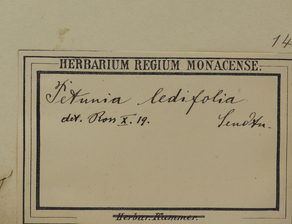 14
HERBARIUM REGIUM MONACENSE.
Petunia ledifolia
det. Ross X. 19. Sendtn.
Herbar. Kummer.